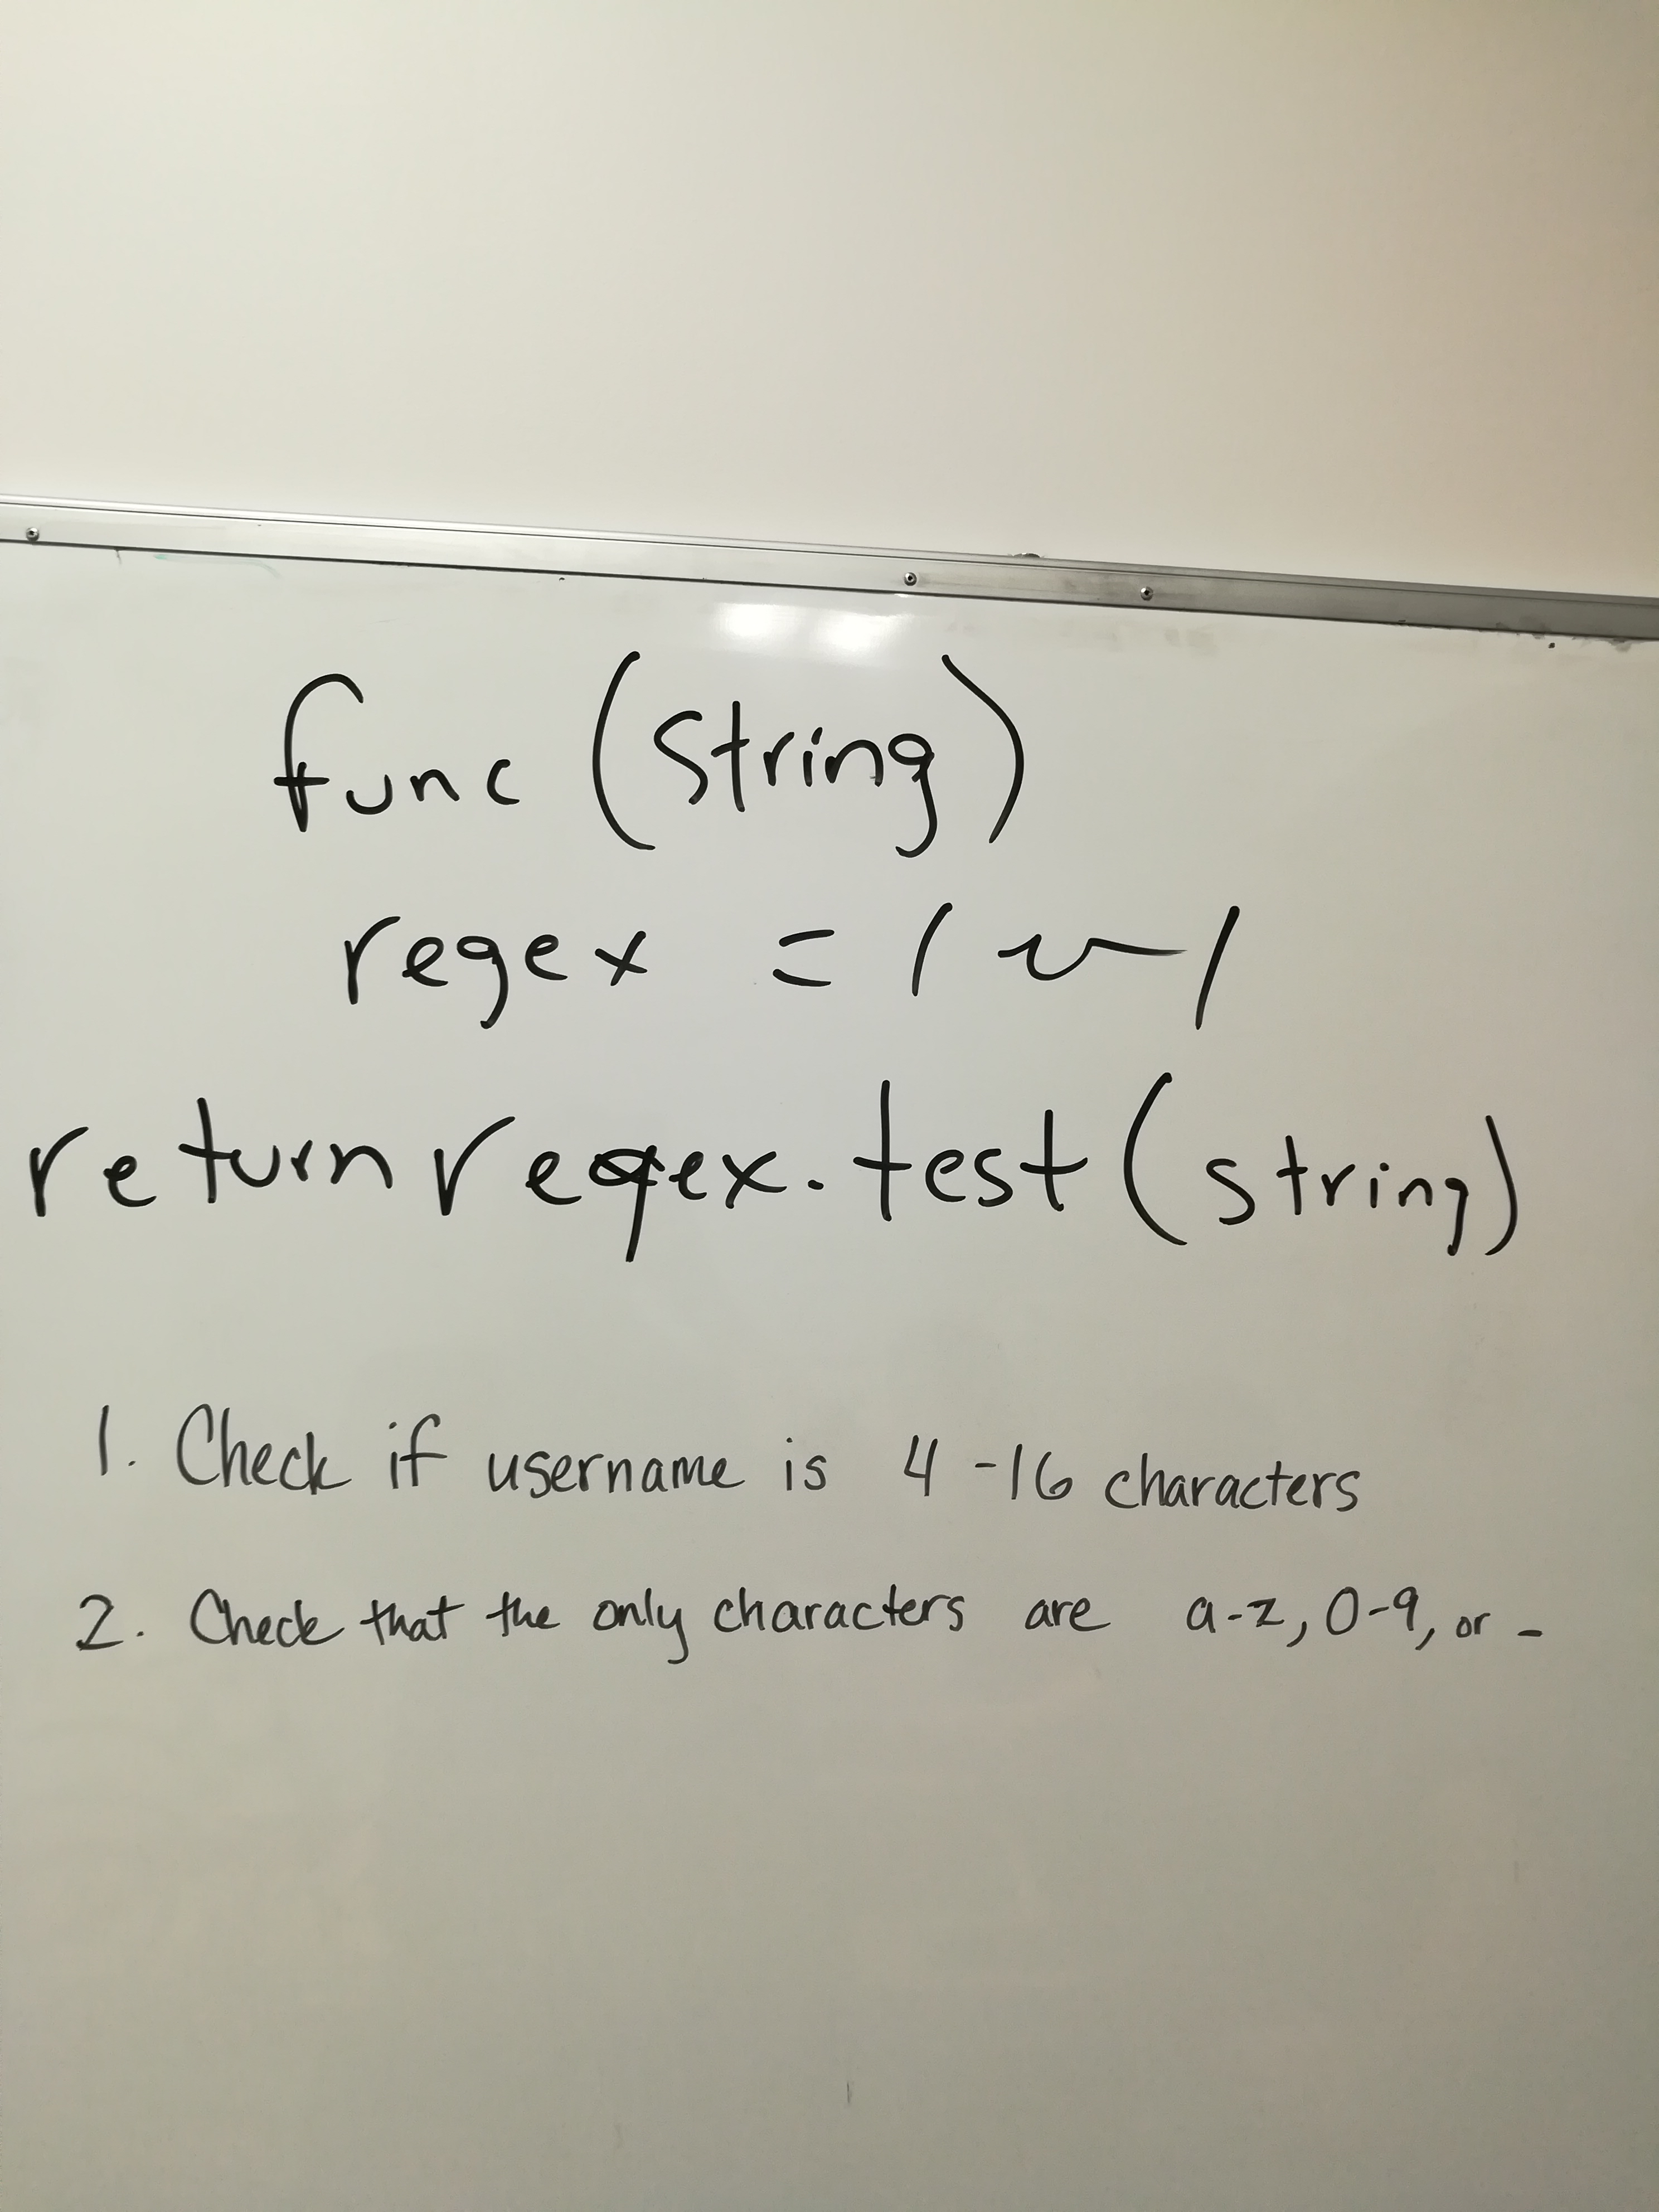 func (string)
regex = / /
return regex.test(string)
1. Check if username is 4-16 characters
2. Check that the only characters are a-z, 0-9, or -